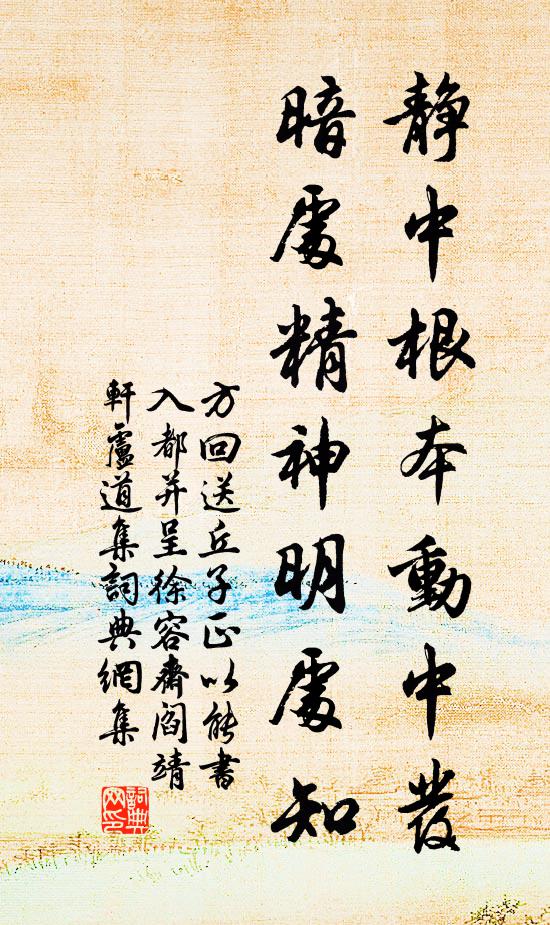 静中根本動中發
暗處精神明處知
方回送丘子正以能書
入都并呈徐容齋閻靖
軒盧道集詞典網集
詞典網印